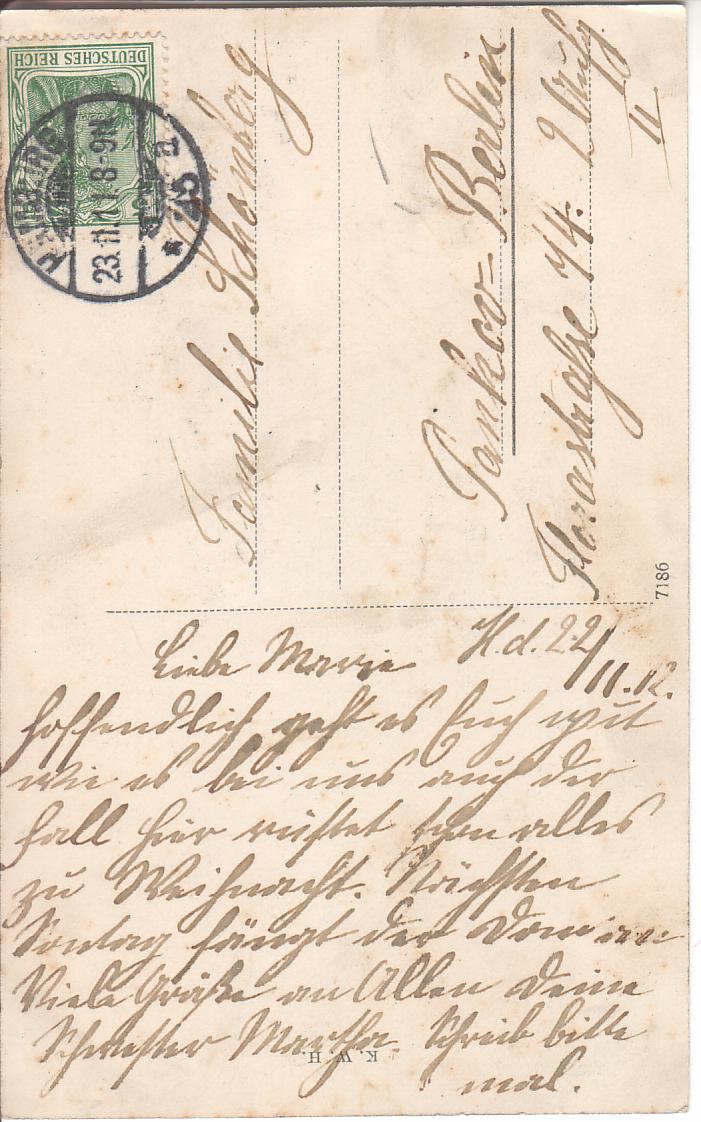 DEUTSCHES REICH
HAMBURG
23.11.11.8-9N
* 25 a
Familie Schönberg
Pankow-Berlin
Florastraße 74. 2 Aufg
II
7186
H. d. 22/11. 12.
Liebe Marie
hoffendlich geht es Euch gut
wie es bei uns auch der
Fall hier rüstet schon alles
zu Weihnacht. Nächsten
Sontag fängt der Dom an
Viele Grüße an Allen Deine
Schwester Martha. Schreib bitte
mal.
K. W. H.